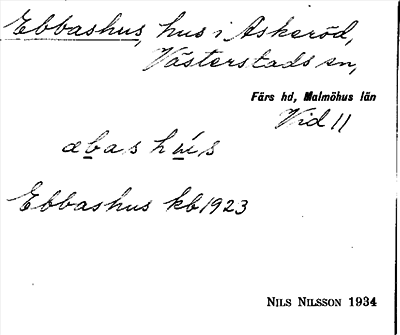 Ebbashus, hus i Askeröd,
Västerstads sn,
Färs hd, Malmöhus län
Vid 11
æbas hús
Ebbashus kb 1923
NILS NILSSON 1934